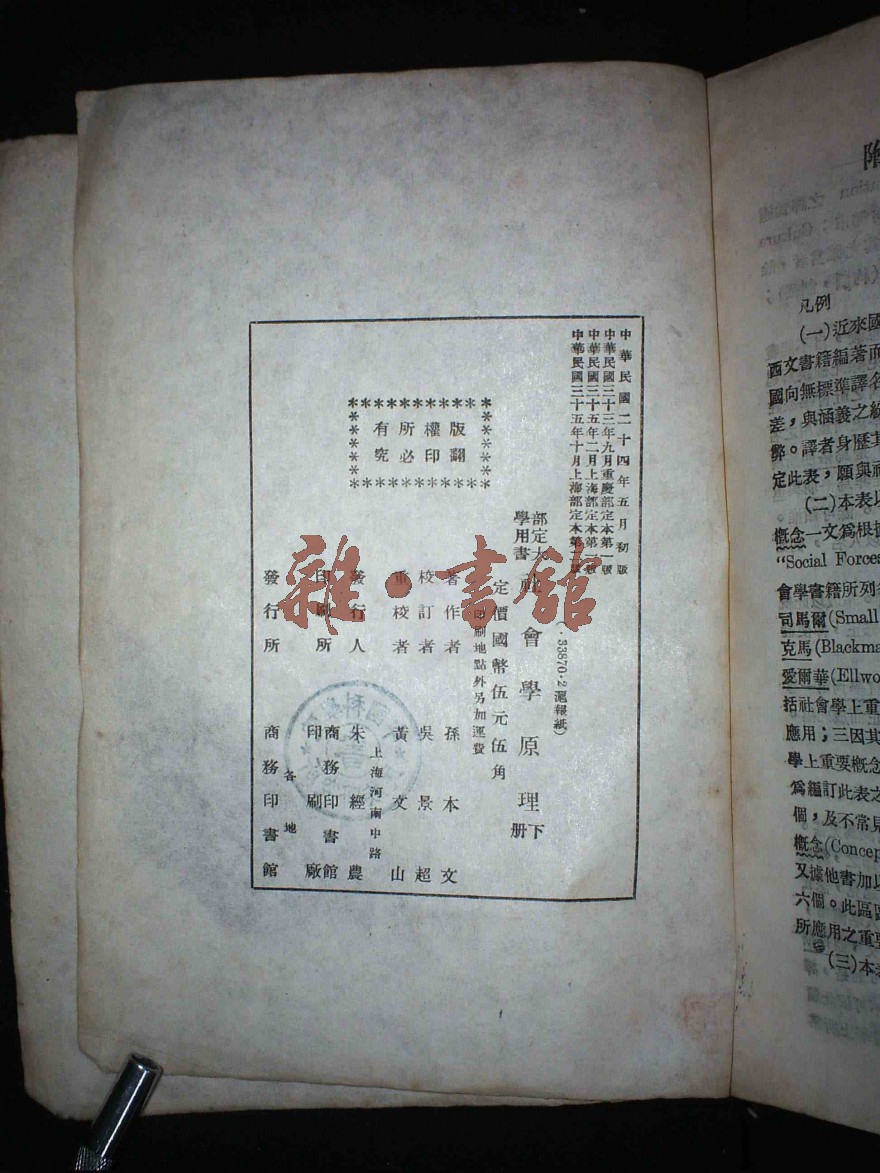 中華民國二十四年五月初版
中華民國三十三年九月重慶部定本第一版
中華民國三十五年二月上海部定本第一版
中華民國三十五年十月上海部定本第
部定大學用書
社會學原理
下冊
33870·2滬報紙)
定價國幣伍元伍角
印刷地點外另加運費
著作者 孫本文
校訂者 吳景超
重校者 黃文山
發行人 朱經農
上海河南中路
印刷所 商務印書館印刷廠
發行所 各地 商務印書館
版權所有
翻印必究
雜·書館
附
凡例
(一)近來國
西文書籍編著而
國向無標準譯名
差,與涵義之紛
弊。譯者身歷其
定此表,願與社
(二)本表以
概念一文爲根據
"Social Forces
會學書籍所列名
司馬爾(Small
克馬(Blackma
愛爾華(Ellwo
括社會學上重
應用;三因其
學上重要概念
爲編訂此表之
個,及不常見
概念(Concep
又據他書加以
六個。此區區
所應用之重要
(三)本表